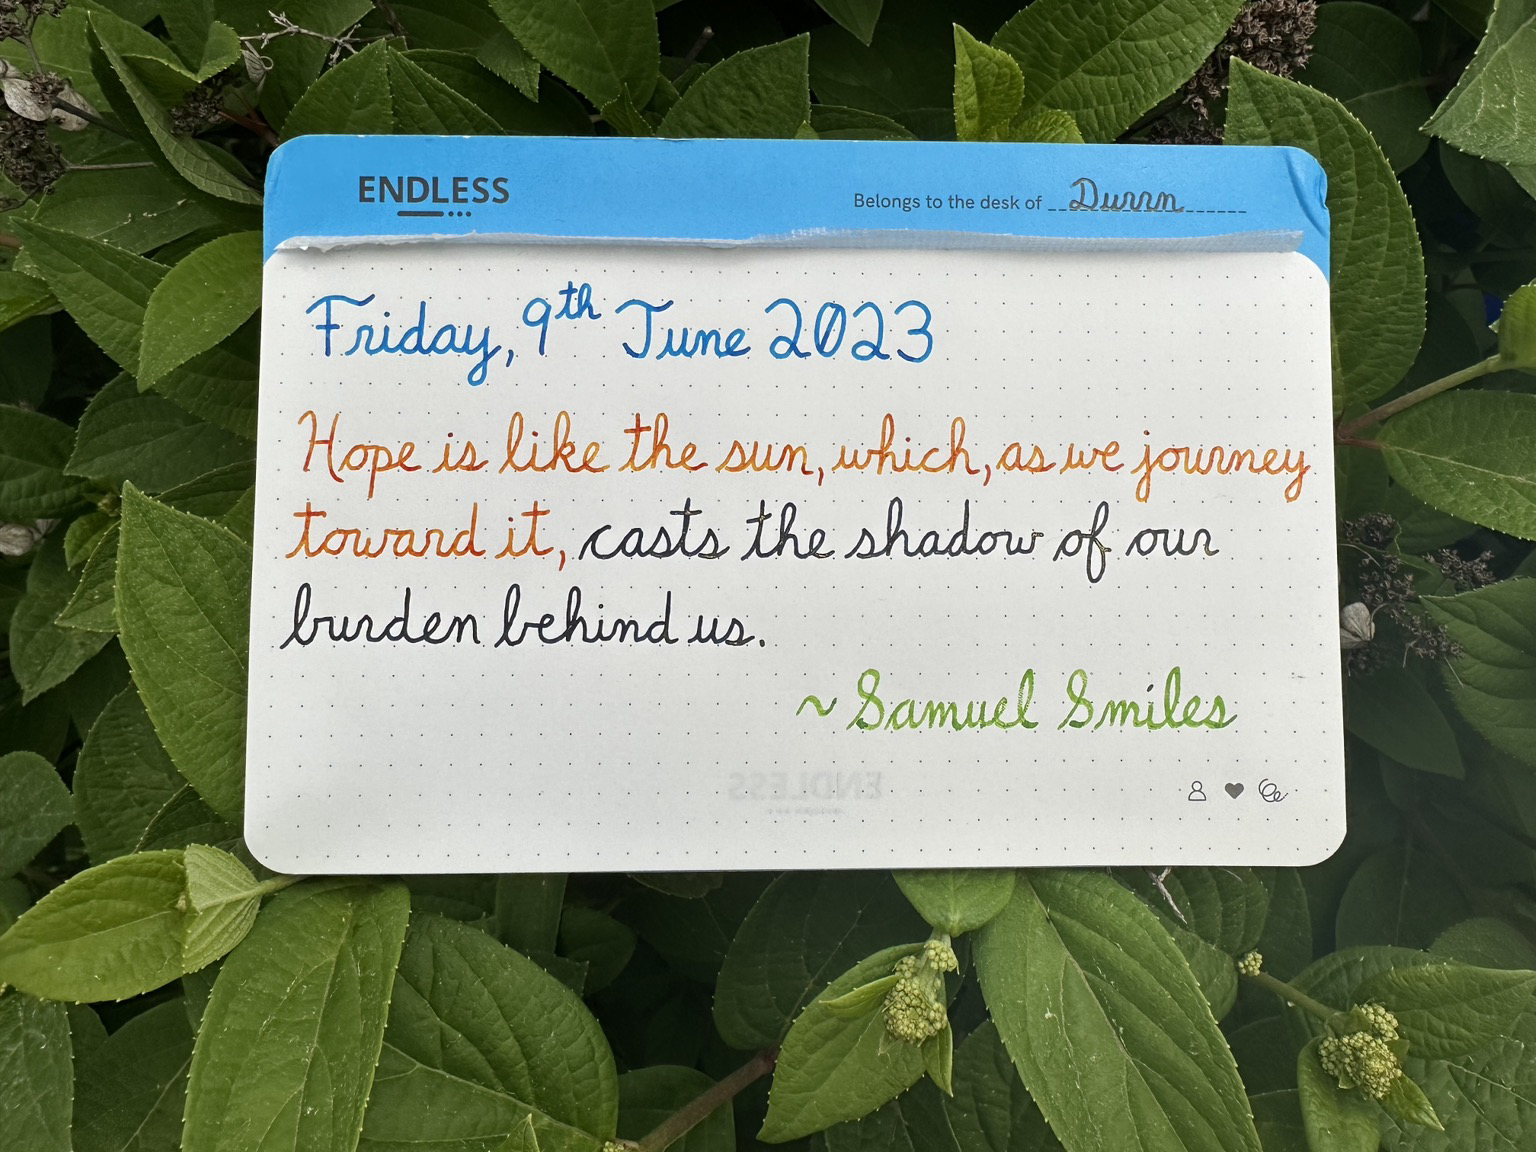 ENDLESS
Belongs to the desk of Durrn
Friday, 9th June 2023
Hope is like the sun, which, as we journey
toward it, casts the shadow of our
burden behind us.
~ Samuel Smiles
ENDLESS